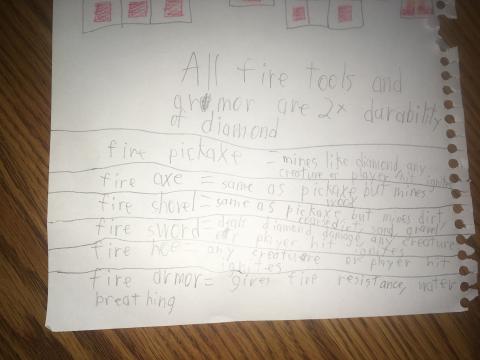 All fire tools and
grmor are 2x darability
of diamond
fire pickaxe = mines like diamond, any
creature or player hit ignites
fire axe = same as pickaxe but mines
wood
fire shovel = same as pickaxe but mines dirt,
sand, gravel
fire sword = deals diamond damage, any creature
or player hit ignites
fire hoe = any creature or player hit
ignites
fire armor = gives fire resistance, water
breathing